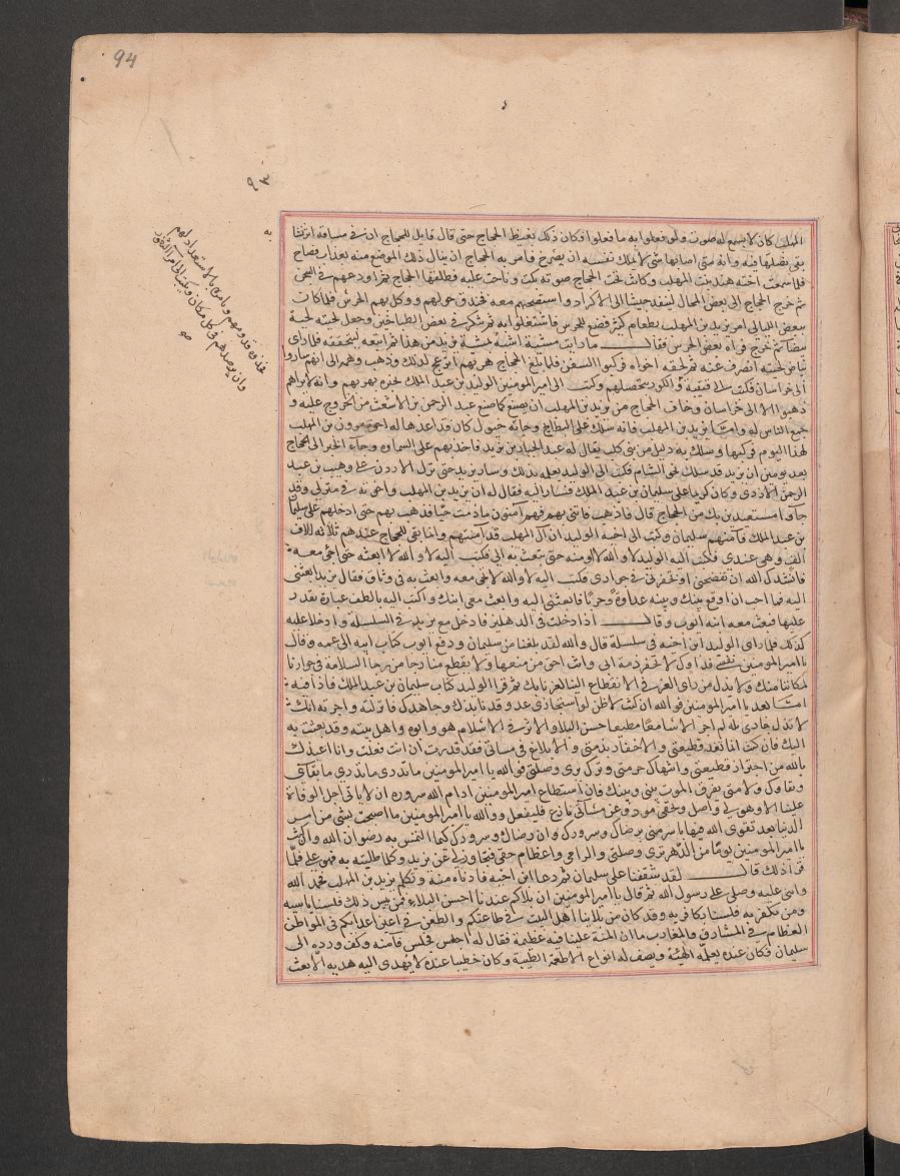 94
٩٣
المهلب كان لا يسمع له صوت ولو فعلوا به ما فعلوا فكان ذلك يغيظ الحجاج حتى قال قايل للحجاج ان في ساقه اثر نشابة
بقى نصلها فيه وانه متى اصابها شى لا يملك نفسه ان يصرخ فامر به الحجاج ان ينال ذلك الموضع منه بعذاب فصاح
فلما سمعت اخته هند بنت المهلب وكانت تحت الحجاج صوته بكت وناحت عليه فطلقها الحجاج ثم اودعهم في السجن
ثم خرج الحجاج الى بعض المحال لينفذ جيشا الى الاكراد واستصحبهم معه فخندق حولهم ووكل بهم الحرس فلما كان
ببعض الليالى امر يزيد بن المهلب بطعام كثير فصنع للحرس فاشتغلوا به ثم تنكر في بعض الطباخين وجعل لحيته لحية
بيضا ثم خرج فراه بعض الحرس فقال ما رايت مشية اشبه بمشية يزيد من هذا ثم اتبعه ليتحققه فلما راى
بياض لحيته انصرف عنه ثم لحقه اخواه فركبوا السفن فلما بلغ الحجاج هربهم انزعج لذلك وذهب وهمه الى انهم ساروا
الى خراسان فكتب الى قتيبة والكور بتحصلهم وكتب الى امير المومنين الوليد بن عبد الملك يخبره بهربهم وانه لا يراهم
ذهبوا الا الى خراسان وخاف الحجاج من يزيد بن المهلب ان يصنع كما صنع عبد الرحمن بن الاشعث من الخروج عليه و
جمع الناس له واما يزيد بن المهلب فانه سلك على البطايح وجاته خيول كان قد اعدها له اخوه مرون بن المهلب
لهذا اليوم فركبها وسلك به دليل من بنى كلب يقال له عبد الجبار بن يزيد فاخذ بهم على السماوة وجاء الخبر الى الحجاج
بعد يومين ان يزيد قد سلك نحو الشام فكتب الى الوليد يعلمه بذلك وسار يزيد حتى نزل الاردن على وهيب بن عبد
الرحمن الازدى وكان كريما على سليمان بن عبد الملك فسار اليه فقال له ان يزيد بن المهلب واخوته في منزلى وقد
جاؤا مستعيذين بك من الحجاج قال فاذهب فاتنى بهم فهم آمنون ما دمت حيا فذهب بهم حتى ادخلهم على سليمان
بن عبد الملك فآمنهم سليمان وكتب الى اخيه الوليد ان آل المهلب قد آمنتهم وانما بقى للحجاج عندهم ثلاثه الاف
الف وهى عندى فكتب اليه الوليد لا والله لا اومنه حتى تبعث به الى فكتب اليه لا والله لا ابعثه حتى اجى معه
فانشدك الله ان تفضحنى او تخفرنى في جوارى فكتب اليه لا والله لا تجى معه وابعث به في وثاق فقال يزيد ابعثنى
اليه فما احب ان اوقع بينك وبينه عداوة وحربا فابعثنى اليه وابعث معى ابنك واكتب اليه بالطف عبارة تقدر
عليها فبعث معه ابنه ايوب وقال اذا دخلت في الدهليز فادخل مع يزيد في السلسلة وادخلا عليه
كذلك فلما راى الوليد ابن اخيه في سلسلة قال والله لقد بلغنا من سليمان ودفع ايوب كتاب ابيه الى عمه وقال
يا امير المومنين نفسى فداؤك لا تخفر ذمة ابى وانت احق من منعها ولا تقطع منا رجا من رجا السلامة في جوارنا
لمكاننا منك ولا تذل من راى العز في الانقطاع الينا لعزنا بك ثم قرا الوليد كتاب سليمان بن عبد الملك فاذا فيه
اما بعد يا امير المومنين فوالله ان كنت لاظن لو استجار بى عدو قد نابذك وجاهدك فانزلته واجرته انك
لا تذل جارى بله لم اجر الا سامعا مطيعا حسن البلا والاثر في الاسلام هو وابوه واهل بيته وقد بعثت به
اليك فان كنت انما تعد قطيعتى والاخفار بذمتى والابلاغ في مساتى فقد قدرت ان انت فعلت وانا اعيذك
بالله من احتراد قطيعتى وانتهاك حرمتى وترك برى وصلتى فوالله يا امير المومنين ما تدرى ما بقاى
وبقاؤك ولا متى يفرق الموت بينى وبينك فان استطاع امير المومنين ادام الله سروره ان لا ياتى اجل الوفاة
علينا الا وهو لى واصل ولحقى مود وعن مساتى نازع فليفعل ووالله يا امير المومنين ما اصبحت بشى من امر
الدنيا بعد تقوى الله فيها باسر منى برضاك وسرورك وان رضاك وسرورك كما التمس به رضوان الله وان كنت
يا امير المومنين يوما من الدهر تريد وصلتى واعظام حقى فتجاوز لى عن يزيد وكلما طلبته به فهو على فلما
قرا ذلك قال لقد شققنا على سليمان ثم دعا ابن اخيه فادناه منه وتكلم يزيد بن المهلب فحمد الله
واثنى عليه وصلى على رسول الله ثم قال يا امير المومنين ان بلاكم عندنا احسن البلاء فمن ينس ذلك فلسنا ناسيه
ومن يكفر به فلسنا بكافريه وقد كان من بلاينا اهل البيت في طاعتكم والطعن في اعين اعدايكم في المواطن
العظام في المشارق والمغارب ما ان المنة علينا فيه عظيمة فقال له اجلس فجلس فآمنه وكف ورده الى
سليمان فكان عنده يعلمه الهيئة ويصف له انواع الاطعمة الطيبة وكان خطيبا عنده لا يهدى اليه هديه الا بعث
قدومهم ويامره بالاستعداد لهم
وان يرصدهم في كل مكان ويكتب الى امرا الثغور